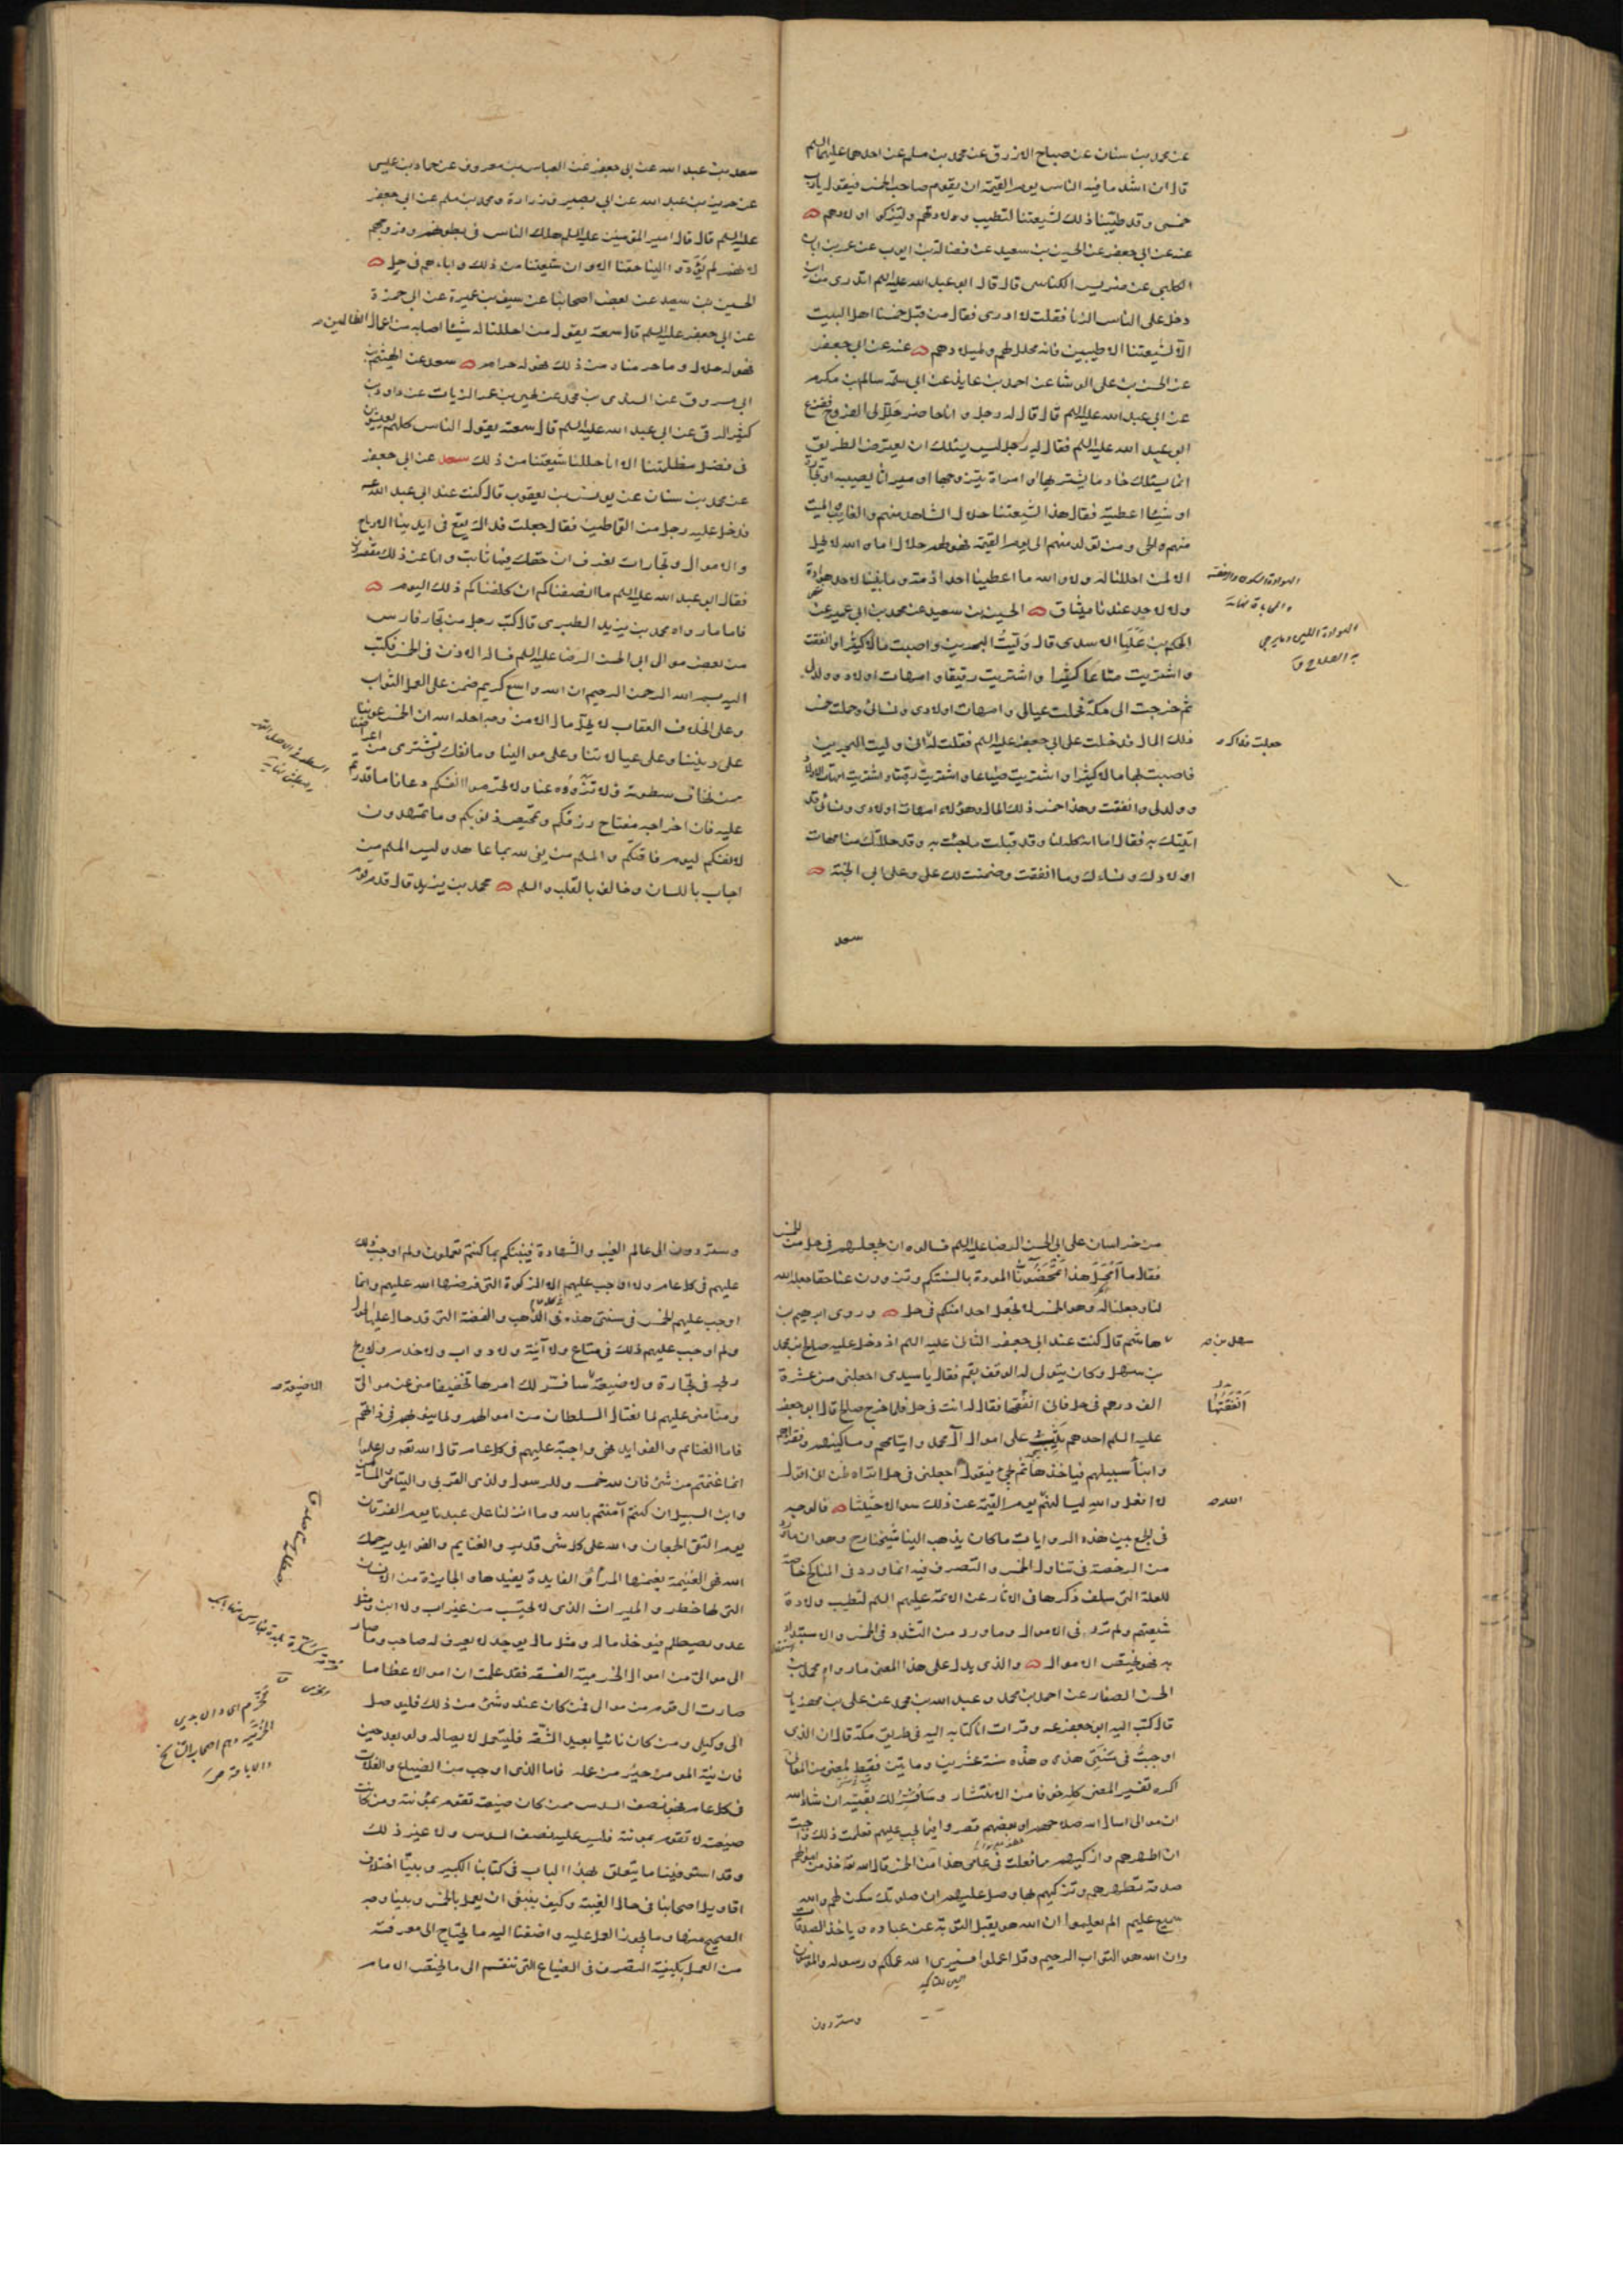 عن محمد بن سنان عن صباح الازرق عن محمد بن مسلم عن احدهما عليهما السلم
قال ان اشد ما فيه الناس يوم القيمة ان يقوم صاحب الخمس فيقول يا رب
خمسي وقد طيبنا ذلك لشيعتنا لتطيب ولادتهم ولتزكو اولادهم
عنه عن ابي جعفر عن الحسين بن سعيد عن فضالة بن ايوب عن عمر بن ابان
الكلبي عن ضريس الكناسي قال قال ابو عبد الله عليه السلم اتدري من اين
دخل على الناس الزنا فقلت لا ادري فقال من قبل خمسنا اهل البيت
الا لشيعتنا الاطيبين فانه محلل لهم ولميلادهم عنه عن ابي جعفر
عن الحسن بن علي الوشا عن احمد بن عايذ عن ابي سلمة سالم بن مكرم
عن ابي عبد الله عليه السلم قال قال له رجل وانا حاضر حلل لي الفروج ففزع
ابو عبد الله عليه السلم فقال له رجل ليس يسئلك ان يعترض الطريق
انما يسئلك خادما يشتريها او امراة يتزوجها او ميراثا يصيبه او تجارة
او شيئا اعطيه فقال هذا لشيعتنا حلال الشاهد منهم والغايب والميت
منهم والحي ومن تولد منهم الى يوم القيمة فهو لهم حلال اما والله لا يحل
الا لمن احللنا له ولا والله ما اعطينا احدا ذمة وما بيننا لاحد هوادة
ولا لاحد عندنا ميثاق الحسين بن سعيد عن محمد بن ابي عمير عن
الحكم بن علبا الاسدي قال وليت البحرين واصبت مالا كثيرا وانفقت
واشتريت متاعا كثيرا واشتريت رقيقا وامهات اولاد وولد لي
ثم خرجت الى مكة فحملت عيالي وامهات اولادي ونسائي وحملت خمس
ذلك المال فدخلت على ابي جعفر عليه السلم فقلت له اني وليت البحرين
فاصبت بها مالا كثيرا واشتريت ضياعا واشتريت رقيقا واشتريت امهات اولاد
وولد لي وانفقت وهذا خمس ذلك المال وهؤلاء امهات اولادي ونسائي قد
اتيتك به فقال اما انه كله لنا وقد قبلت ما جئت به وقد حللتك من امهات
اولادك ونساءك وما انفقت وضمنت لك علي وعلى ابي الجنة
سعد
جعلت فداك
سعد بن عبد الله عن ابي جعفر عن العباس بن معروف عن حماد بن عيسى
عن حريز بن عبد الله عن ابي بصير وزرارة ومحمد بن مسلم عن ابي جعفر
عليه السلم قال قال امير المؤمنين عليه السلم هلك الناس في بطونهم وفروجهم
لانهم لم يؤدوا الينا حقنا الا وان شيعتنا من ذلك واباءهم في حل
الحسين بن سعيد عن بعض اصحابنا عن سيف بن عميرة عن ابي حمزة
عن ابي جعفر عليه السلم قال سمعته يقول من احللنا له شيئا اصابه من اعمال الظالمين
فهو له حلال وما حرمناه من ذلك فهو له حرام سعد عن الهيثم بن
ابي مسروق عن السندي بن محمد عن يحيى بن عمر الزيات عن داود بن
كثير الرقي عن ابي عبد الله عليه السلم قال سمعته يقول الناس كلهم يعيشون
في فضل مظلمتنا الا انا احللنا شيعتنا من ذلك سعد عن ابي جعفر
عن محمد بن سنان عن يونس بن يعقوب قال كنت عند ابي عبد الله عليه السلم
فدخل عليه رجل من القماطين فقال جعلت فداك يقع في ايدينا الارباح
والاموال وتجارات نعرف ان حقك فيها ثابت وانا عن ذلك مقصرون
فقال ابو عبد الله عليه السلم ما انصفناكم ان كلفناكم ذلك اليوم
فاما ما رواه محمد بن يزيد الطبري قال كتب رجل من تجار فارس
من بعض موالي ابي الحسن الرضا عليه السلم فساله الاذن في الخمس فكتب
اليه بسم الله الرحمن الرحيم ان الله واسع كريم ضمن على العمل الثواب
وعلى الخلاف العقاب لا يحل مال الا من وجه احله الله ان الخمس عوننا
على ديننا وعلى عيالاتنا وعلى موالينا وما نفك ونشترى من اعراضنا
ممن نخاف سطوته فلا تزووه عنا ولا تحرموا انفسكم دعانا ما قدرتم
عليه فان اخراجه مفتاح رزقكم وتمحيص ذنوبكم وما تمهدون
لانفسكم ليوم فاقتكم والمسلم من يفي لله بما عاهد وليس المسلم من
اجاب باللسان وخالف بالقلب والسلم محمد بن يزيد قال قدم قوم
من خراسان على ابي الحسن الرضا عليه السلم فسالوه ان يجعلهم في حل من الخمس
فقال ما امحل هذا تمحضونا المودة بالسنتكم وتزوون عنا حقا جعله الله
لنا وجعلنا له وهو الخمس لا نجعل احدا منكم في حل وروى ابرهيم بن
هاشم قال كنت عند ابي جعفر الثاني عليه السلم اذ دخل عليه صالح بن محمد
بن سهل وكان يتولى له الوقف بقم فقال يا سيدي اجعلني من عشرة
الف درهم في حل فاني انفقتها فقال له انت في حل فلما خرج صالح قال ابو جعفر
عليه السلم احدهم يثب على اموال آل محمد وايتامهم ومساكينهم وفقراءهم
وابناء سبيلهم فياخذها ثم يجئ فيقول اجعلني في حل اتراه ظن اني اقول
لا افعل والله ليسالنهم يوم القيمة عن ذلك سوالا حثيثا فالوجه
في الجمع بين هذه الروايات ما كان يذهب الينا شيخنا رح وهو ان ما ورد
من الرخصة في تناول الخمس والتصرف فيه انما ورد في المناكح خاصة
للعلة التي سلف ذكرها في الاثار عن الائمة عليهم السلم لتطيب ولادة
شيعتهم ولم ترد في الاموال وما ورد من التشدد في الخمس والاستبداد
به فهو يختص الاموال والذي يدل على هذا المعنى ما رواه محمد بن
الحسن الصفار عن احمد بن محمد وعبد الله بن محمد عن علي بن مهزيار
قال كتب اليه ابو جعفر عه وقرات انا كتابه اليه في طريق مكة قال ان الذي
اوجبت في سنتي هذه وهذه سنة عشرين ومايتين فقط لمعنى من المعاني
اكره تفسير المعنى كله خوفا من الانتشار وسافسر لك بقيته ان شاء الله
ان موالي اسال الله صلاحهم او بعضهم قصروا فيما يجب عليهم فعلمت ذلك فاحببت
ان اطهرهم وازكيهم بما فعلت في عامي هذا من الخمس قال الله تعه خذ من اموالهم
صدقة تطهرهم وتزكيهم بها وصل عليهم ان صلوتك سكن لهم والله
سميع عليم الم يعلموا ان الله هو يقبل التوبة عن عباده وياخذ الصدقات
وان الله هو التواب الرحيم وقل اعملوا فسيرى الله عملكم ورسوله والمؤمنون
وستردون
سهل بن
انفقتها
الله
وستردون الى عالم الغيب والشهادة فينبئكم بما كنتم تعملون ولم اوجب ذلك
عليهم في كل عام ولا اوجب عليهم الا الزكوة التي فرضها الله عليهم وانما
اوجب عليهم الخمس في سنتي هذه في الذهب والفضة التي قد حال عليها الحول
ولم اوجب عليهم ذلك في متاع ولا آنية ولا دواب ولا خدم ولا ربح
ربحه في تجارة ولا ضيعة سافسر لك امرها تخفيفا مني عن موالي
ومنا مني عليهم لما يغتال السلطان من اموالهم ولما ينوبهم في ذاتهم
فاما الغنائم والفوايد فهي واجبة عليهم في كل عام قال الله تعه واعلموا
انما غنمتم من شئ فان لله خمسه وللرسول ولذي القربى واليتامى والمساكين
وابن السبيل ان كنتم آمنتم بالله وما انزلنا على عبدنا يوم الفرقان
يوم التقى الجمعان والله على كل شئ قدير والغنايم والفوايد يرحمك
الله فهي الغنيمة يغنمها المرء والفايدة يفيدها والجايزة من الانسان
التي لها خطر والميراث الذي لا يحتسب من غير اب ولا ابن ومثل
عدو يصطلم فيؤخذ ماله ومثل مال يوجد لا يعرف له صاحب وما صار
الى موالي من اموال الخرمية الفسقة فقد علمت ان اموالا عظاما
صارت الى قوم من موالي فمن كان عنده شئ من ذلك فليوصل
الى وكيلي ومن كان نائيا بعيد الشقة فليتعمد لايصاله ولو بعد حين
فان نية المومن خير من عمله فاما الذي اوجب من الضياع والغلات
في كل عام فهو نصف السدس ممن كان ضيعته تقوم بمؤنته ومن كانت
ضيعته لا تقوم بمونته فليس عليه نصف السدس ولا غير ذلك
وقد استوفينا ما يتعلق بهذا الباب في كتابنا الكبير وبينا اختلاف
اقاويل اصحابنا في حال الغيبة وكيف ينبغي ان يعمل بالخمس وبينا وجه
الصحيح منها وما يجوز العمل عليه واضفنا اليه ما يحتاج الى معرفته
من العمل بكيفية التصرف في الضياع التي تنقسم الى ما يختص الامام